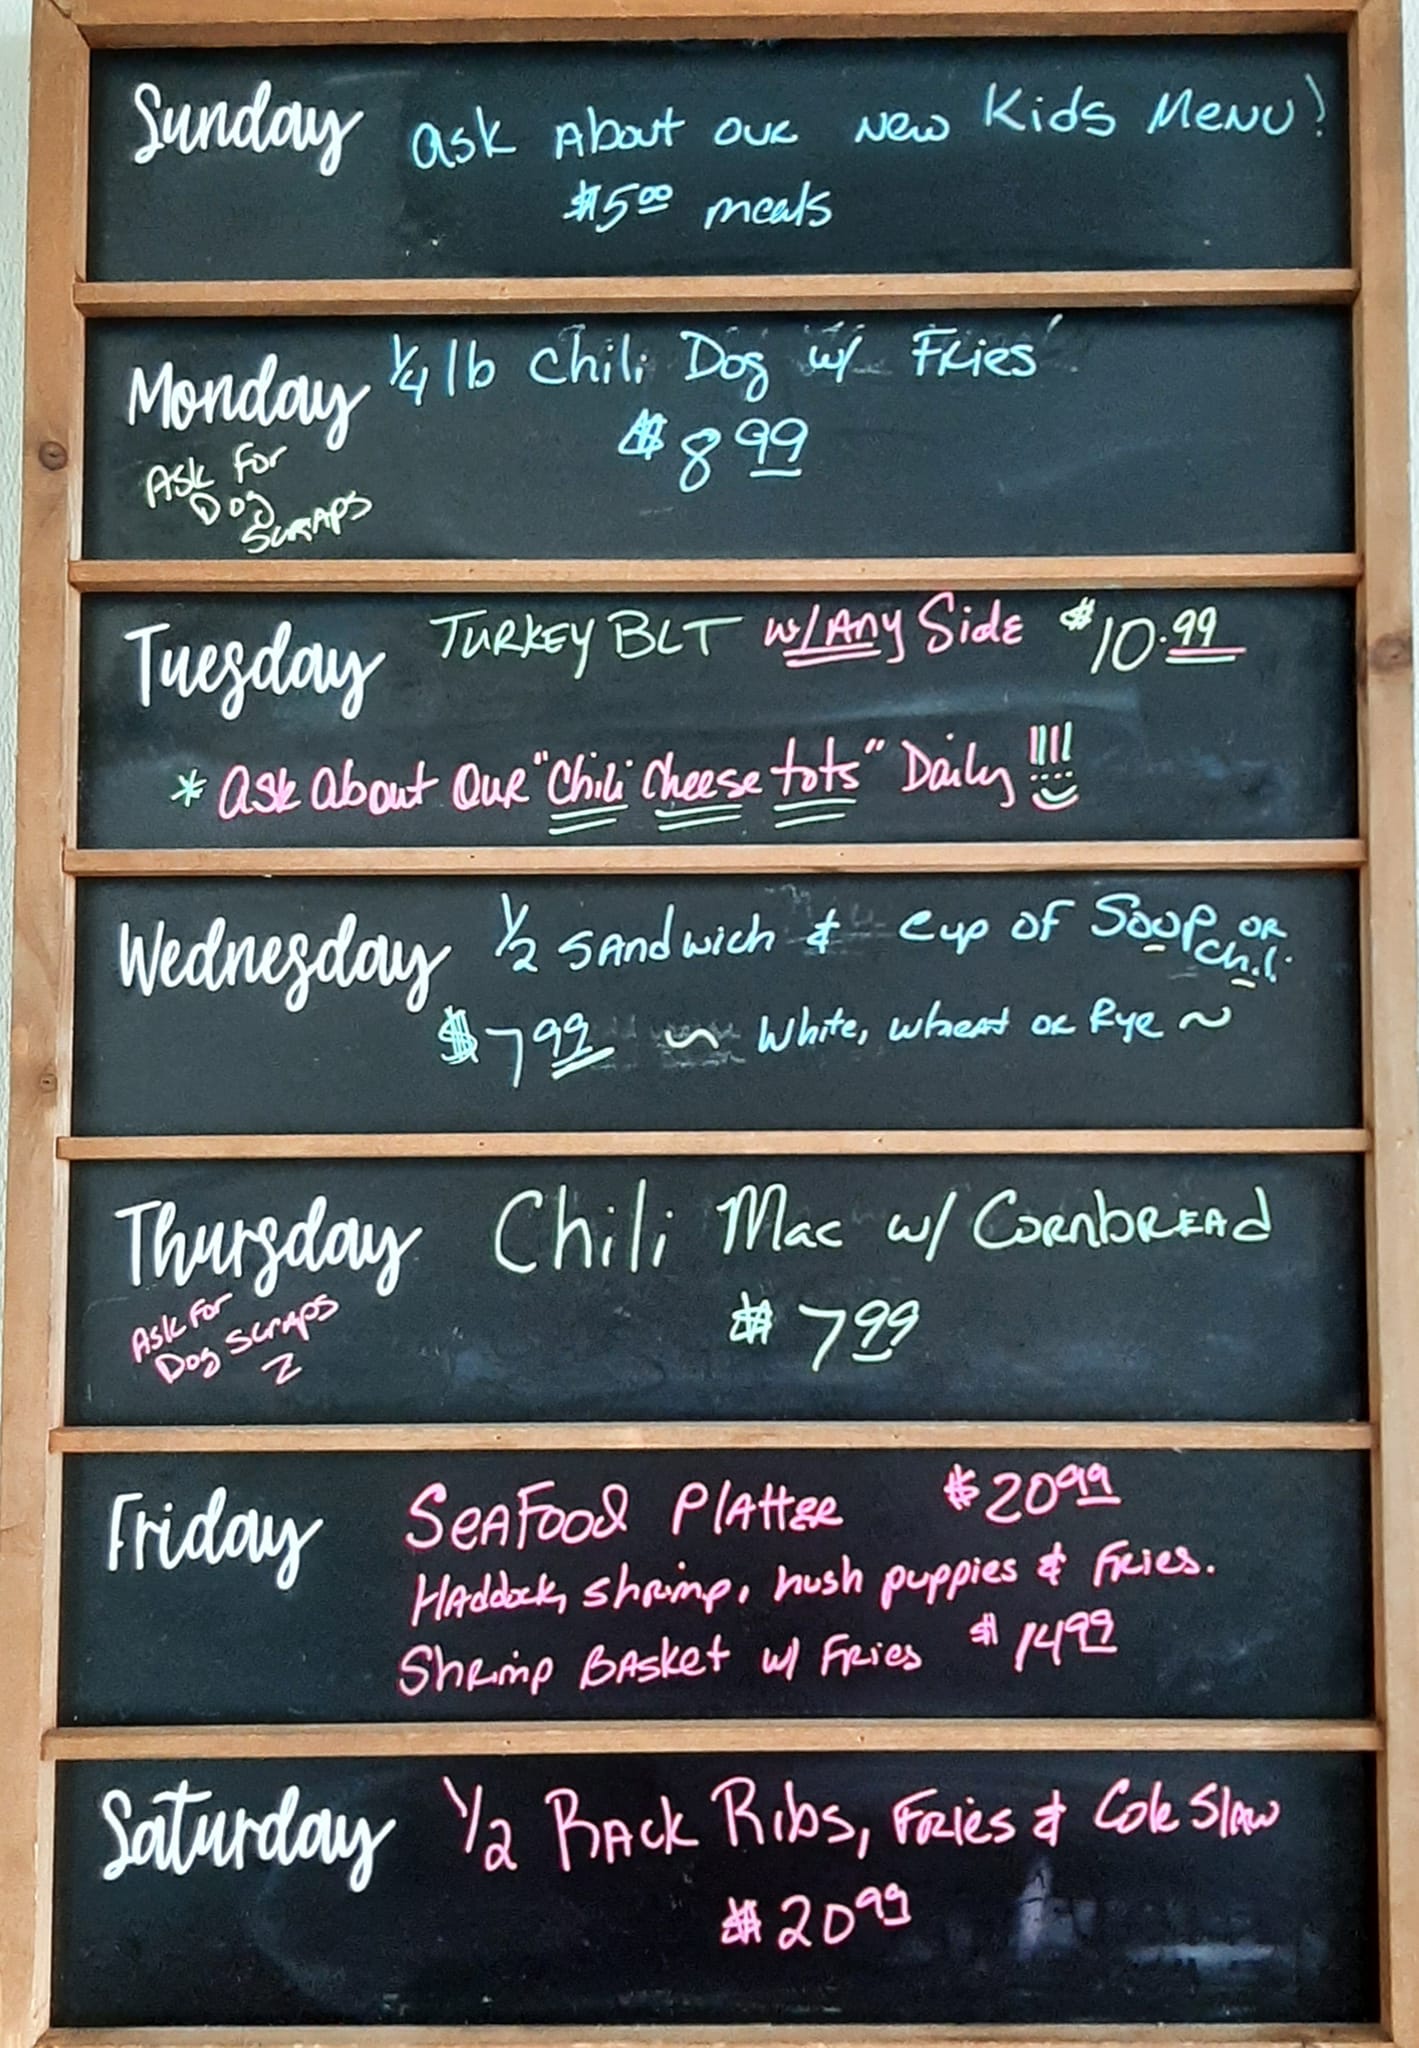 Sunday
Ask About our New Kids Menu!
$5.00 meals
Monday
1/4 lb Chili Dog w/ Fries
$8.99
Ask For
Dog
Scraps
Tuesday
Turkey BLT w/Any Side $10.99
* Ask About Our "Chili Cheese tots" Daily !!!!
Wednesday
1/2 Sandwich & Cup of Soup or
Chili
$7.99 ~ White, Wheat or Rye ~
Thursday
Chili Mac w/ Cornbread
$7.99
Ask For
Dog Scraps
Friday
Seafood Platter $20.99
Haddock, shrimp, hush puppies & Fries.
Shrimp Basket w/ Fries $14.99
Saturday
1/2 Rack Ribs, Fries & Cole Slaw
$20.99